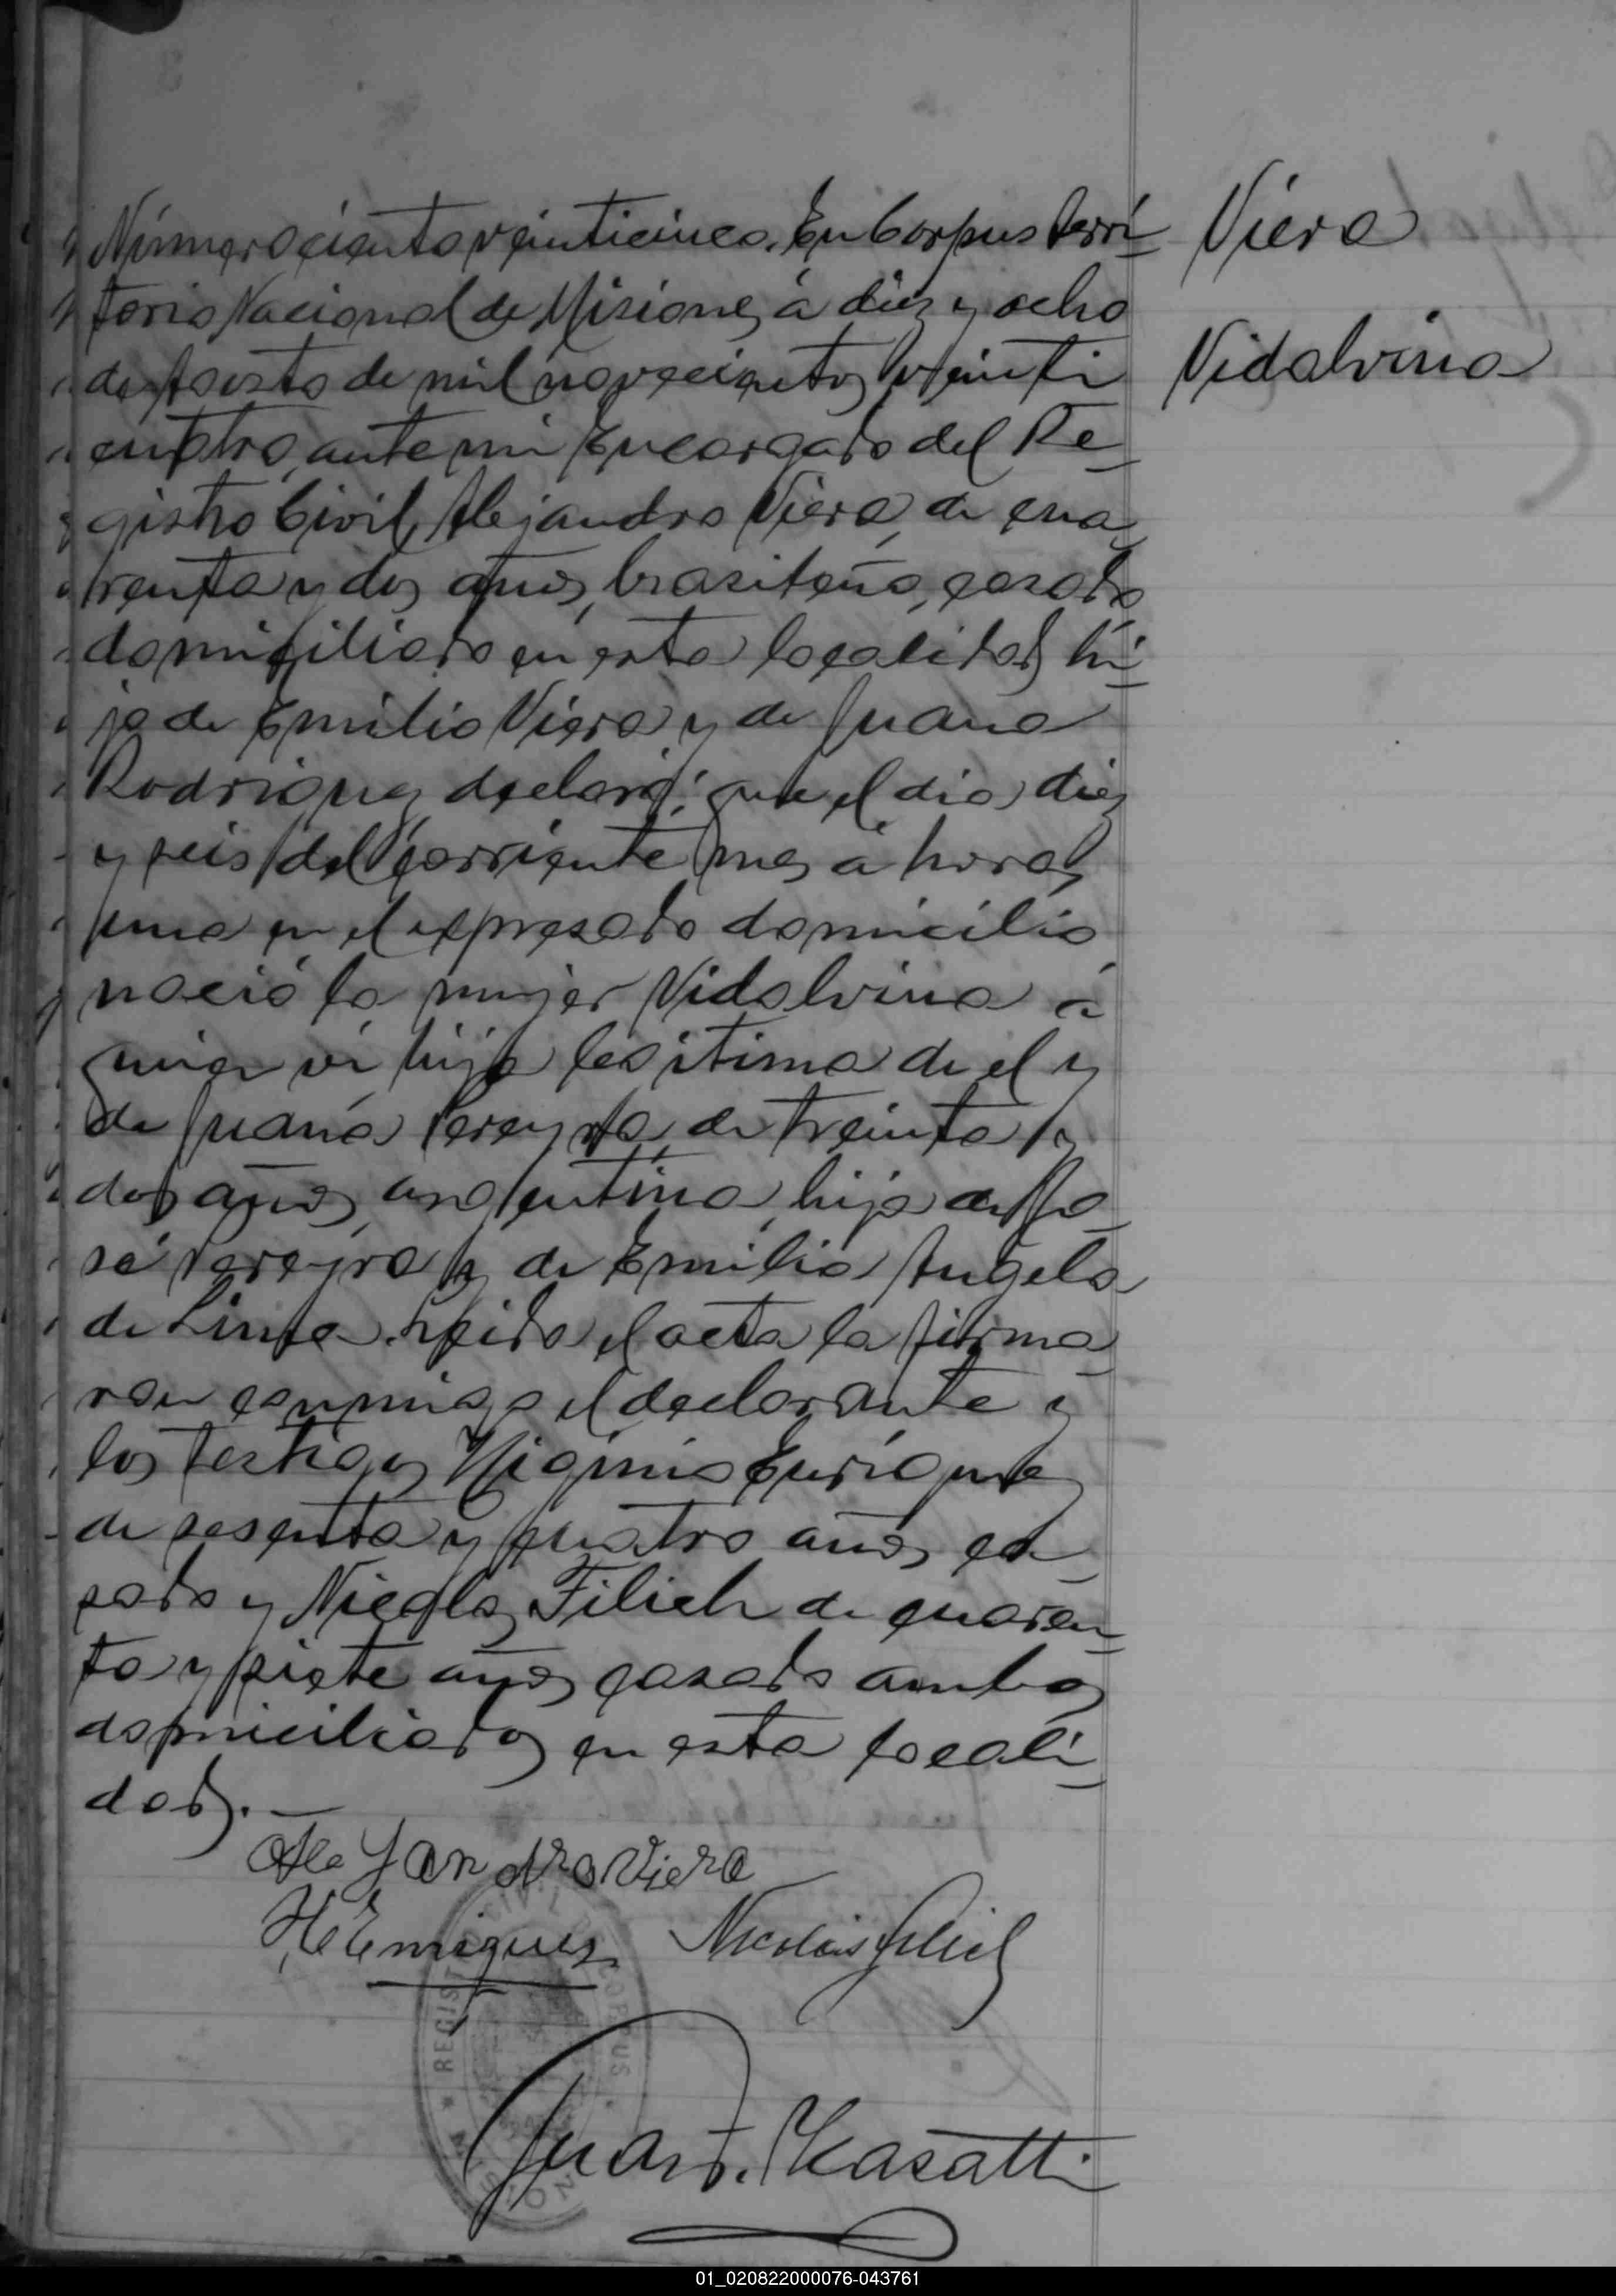 Número ciento veinticinco. En Corpus Terri-
torio Nacional de Misiones, á diez y ocho
de Agosto de mil novecientos veinti
cuatro, ante mi Encargado del Re-
gistro Civil, Alejandro Viera, de cua-
renta y dos años, brasileño, casado
domiciliado en esta localidad, hi-
jo de Emilio Viera y de Juana
Rodriguez, declaró: que el dia diez
y seis del corriente mes á horas
una en el expresado domicilio
nació la mujer Vidalvina á
quien vi hija legitima de el y
de Juana Pereyra, de treinta y
dos años, argentina, hija de Jo-
sé Pereyra y de Emilia Angela
de Lima. Leida el acta la firma-
ron conmigo el declarante y
los testigos Higinio Enriquez
de sesenta y cuatro años, ca-
sado y Nicolas Filich de cuaren-
ta y siete años, casado ambos
domiciliados en esta locali-
dad.—
Viera
Vidalvina
Alejandro Viera
H Enriquez Nicolás Filich
REGISTRO CIVIL CORPUS
MISIONES
Juan F. Kasatti
01_020822000076-043761